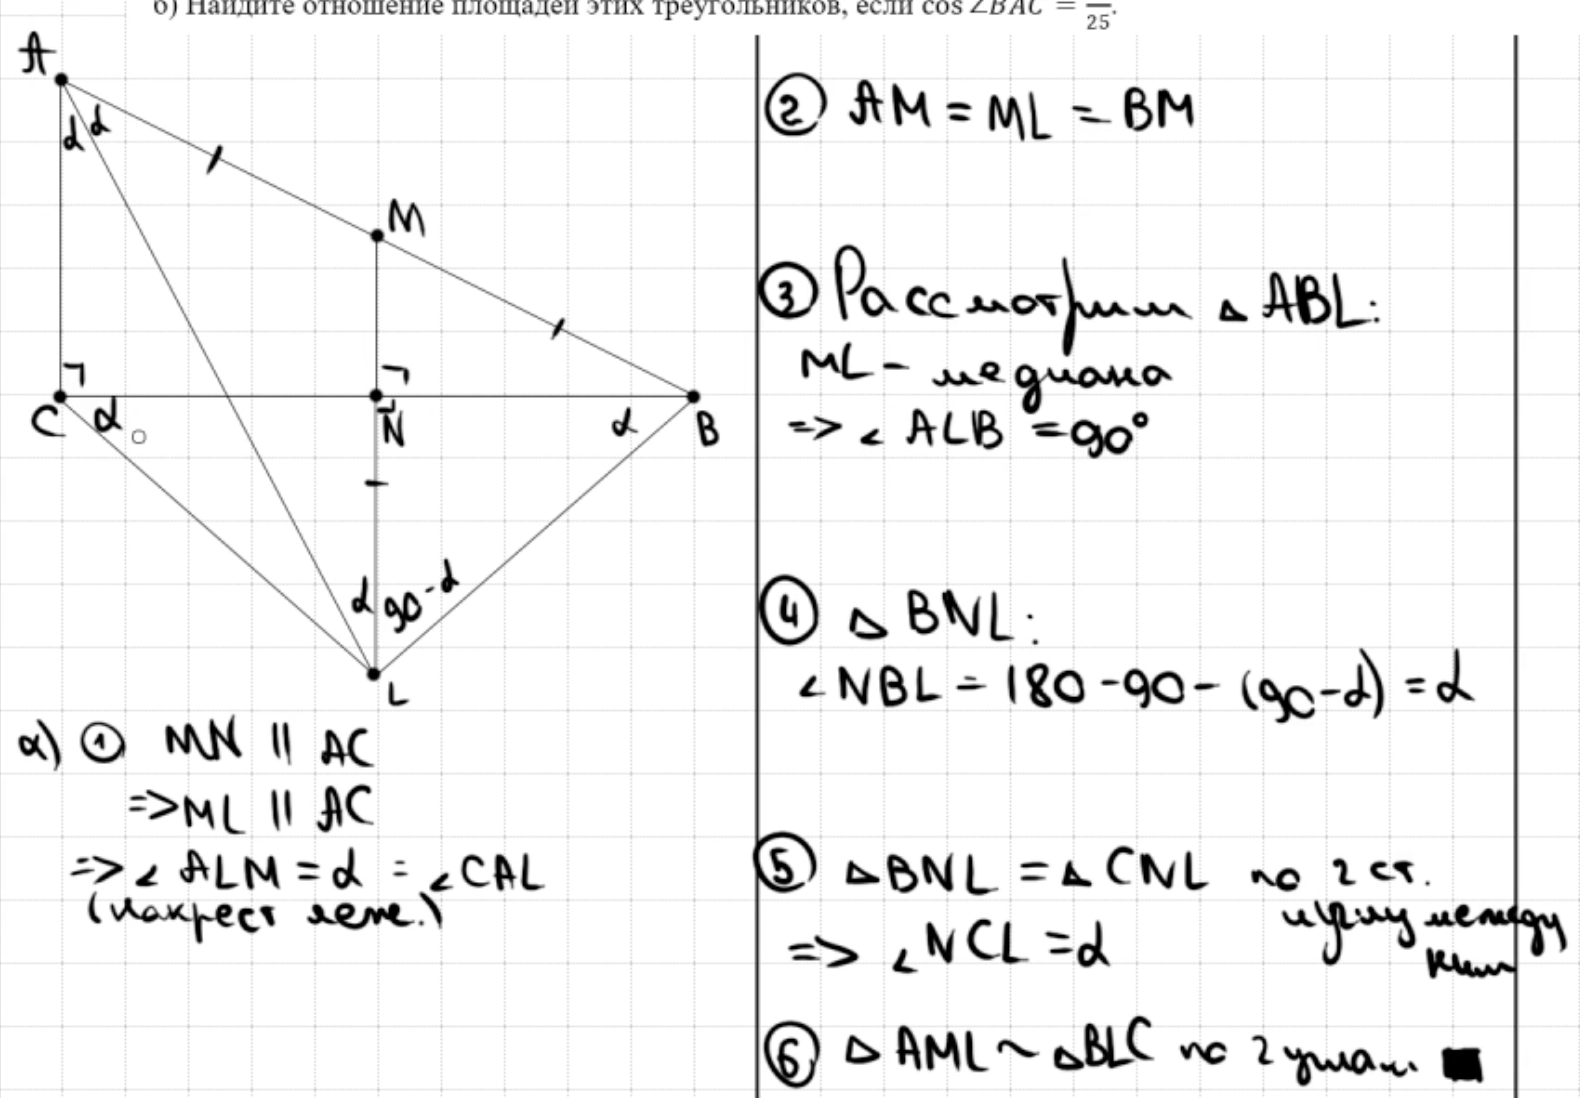 б) Найдите отношение площадей этих треугольников, если cos ∠BAC = /25.
A
α α
M
C α
N
α B
α 90-α
L
а) ① MN || AC
=> ML || AC
=> ∠ALM = α = ∠CAL
(накрест леж.)
② AM = ML = BM
③ Рассмотрим △ ABL:
ML - медиана
=> ∠ ALB = 90°
④ △ BNL:
∠NBL = 180 - 90 - (90-α) = α
⑤ △BNL = △ CNL по 2 ст.
и углу между
ними
=> ∠NCL = α
⑥ △ AML ~ △BLC по 2 углам. ■